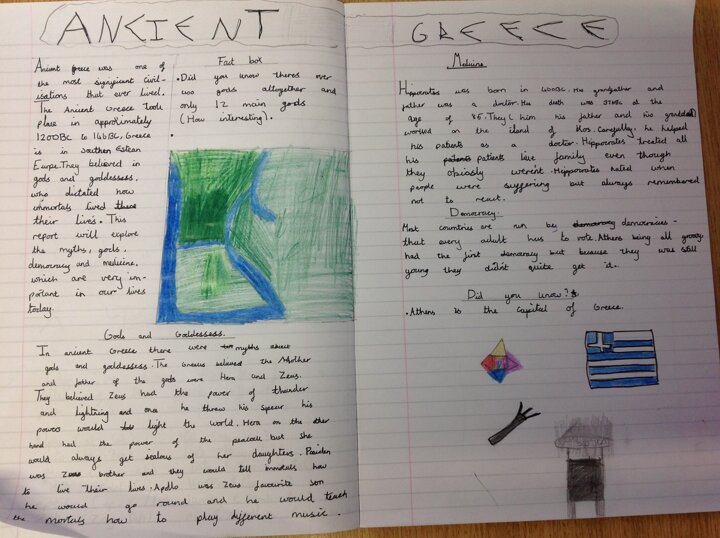 ANCIENT GREECE
Ancient Greece was one of
the most significant civil-
isations that ever lived.
The Ancient Greece took
place in approximately
1200BC to 146BC, Greece
is in southern Estean
Eurpe. They believed in
gods and goddesses,
who dictated how
immortals lived there
their live's. This
report will explore
the myths, gods,
democracy and medicine,
which are very im-
portant in our lives
today.
Fact box
• Did you know theres over
200 gods altogether and
only 12 main gods
(How interesting).
•
Gods and Goddessess.
In ancient Greece there were myths about
gods and goddessess. The Greeks believed the Mother
and father of the gods were Hera and Zeus.
They belived Zeus had the power of thunder
and lightning and once he threw his spear his
powers would light the world. Hera on the other
hand had the power of the peacock but she
would always get jealous of her daughters. Posiden
was Zeus brother and they would tell immortals how
to live their lives. Apollo was Zeus favourite son
he would go round and he would teach
the mortals how to play different music.
Medicine
Hippocrates was born in 460BC. His grandfather and
father was a doctor. His death was 375BC at the
age of 85. They (him his father and his grandad)
worked on the island of Kos. Carefully, he helped
his patients as a doctor. Hipporates treated all
his patients like family even though
they obiosly werent. Hipporates hated when
people were suffering but always remembered
not to react.
Democracy.
Most countries are run by democracies-
that every adult has to vote. Athens being all groovy
had the first democracy but because they was still
young they didn't quite get it.
Did you know?
• Athens is the capital of Greece.